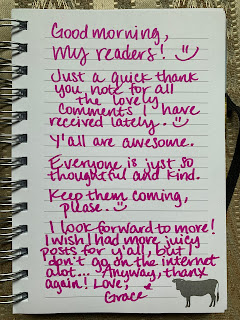 Good morning,
my readers! :)
Just a quick thank
you note for all
the lovely
comments I have
received lately. :)
Y'all are awesome.
Everyone is just so
thoughtful and kind.
Keep them coming,
please. :)
I look forward to more!
I wish I had more juicy
posts for y'all, but I
don't go on the internet
alot... Anyway, thank
again! Love,
Grace